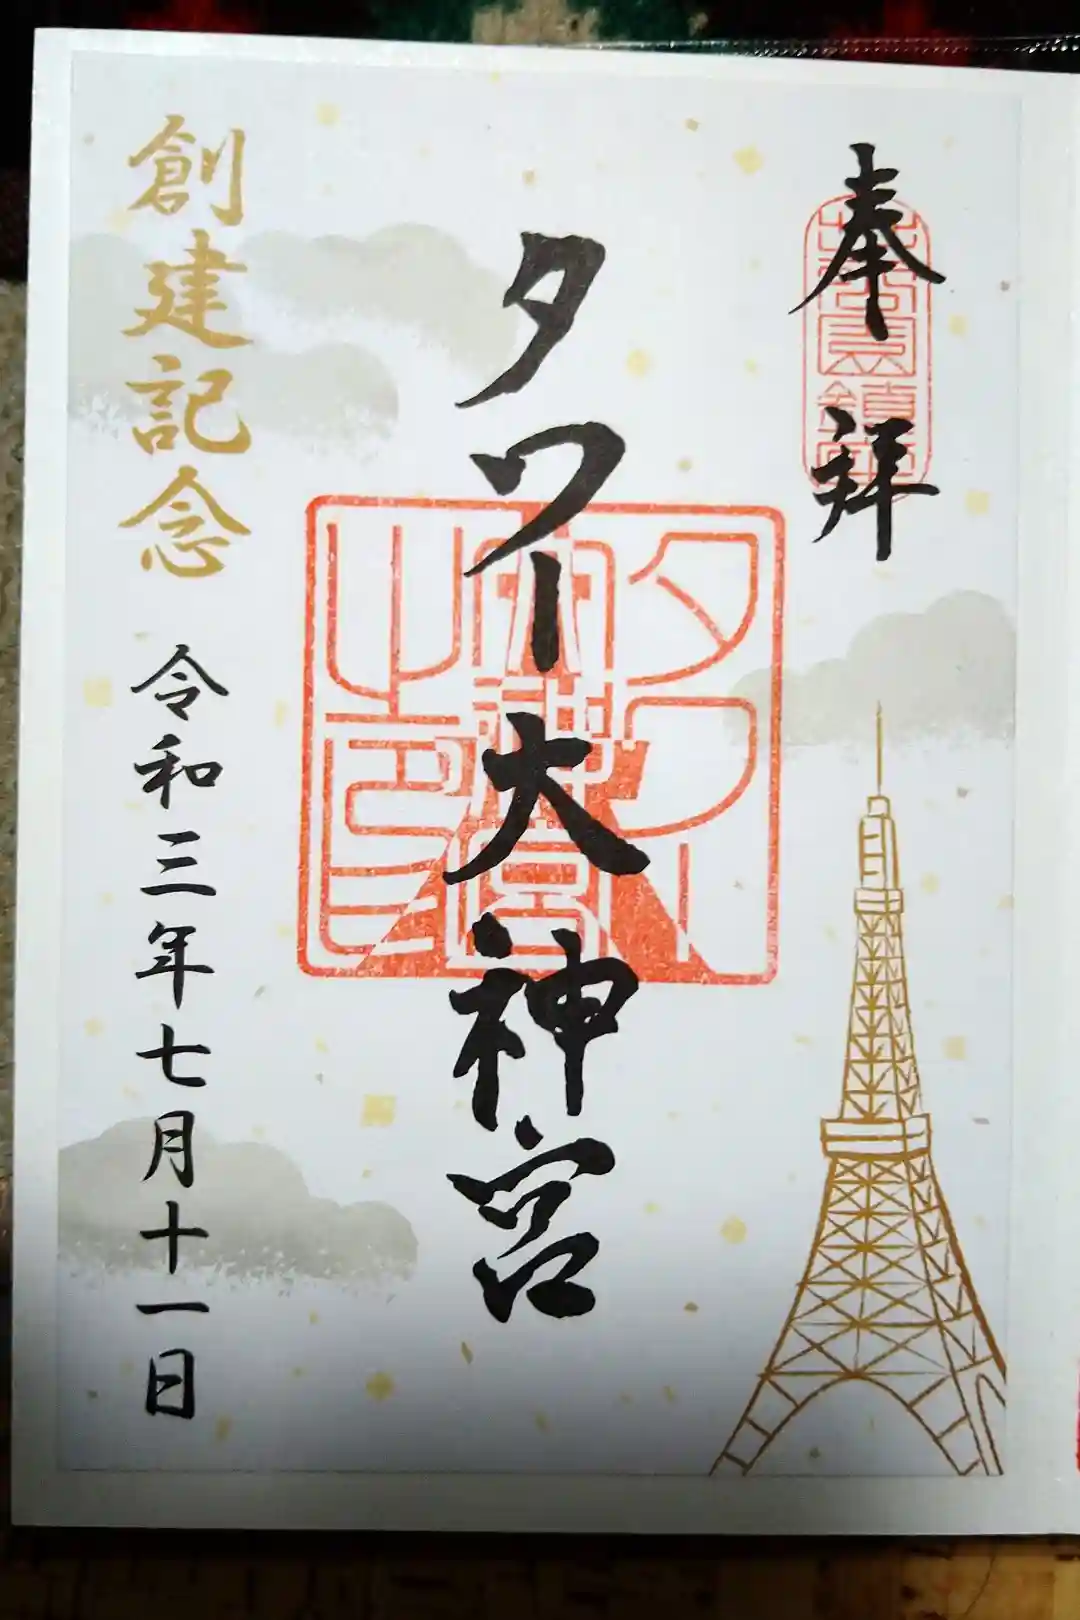 奉拝
タワー大神宮
タワー
大神宮
之印
創建記念
令和三年七月十一日